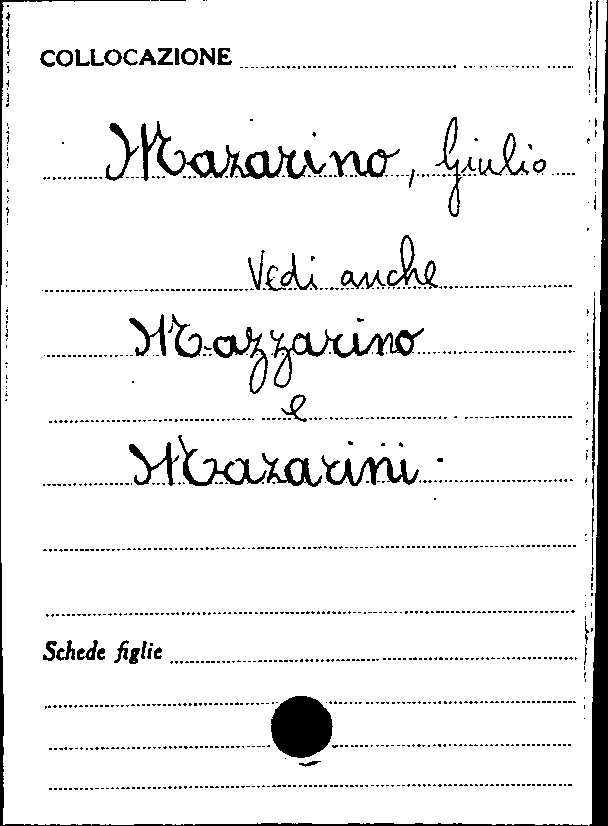 COLLOCAZIONE
Mazarino, Giulio
Vedi anche
Mazzarino
e
Mazarini.
Schede figlie